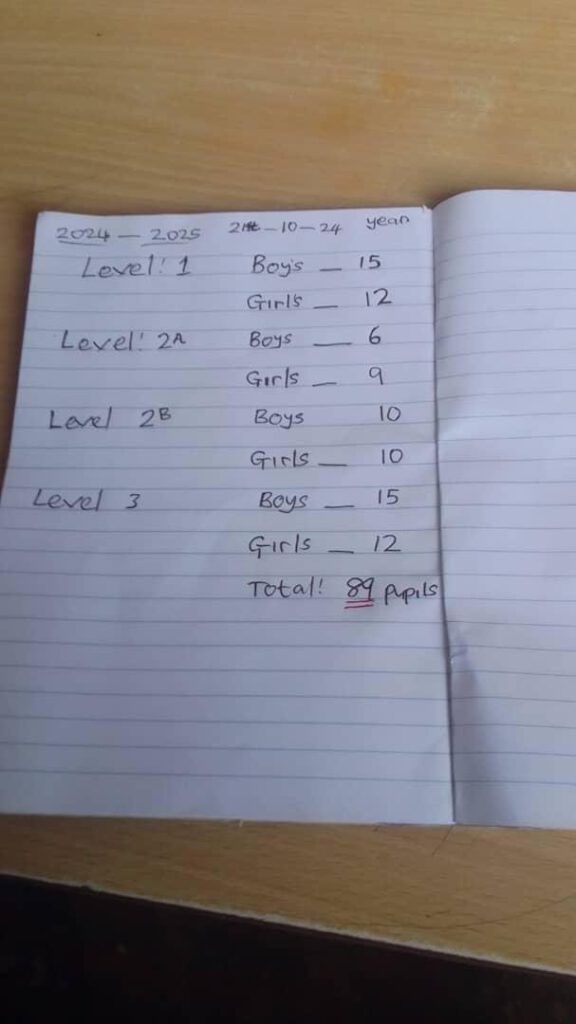 2024 — 2025 21st-10-24 year
Level: 1 Boys — 15
Girls — 12
Level: 2A Boys — 6
Girls — 9
Level 2B Boys 10
Girls — 10
Level 3 Boys — 15
Girls — 12
Total: 89 pupils